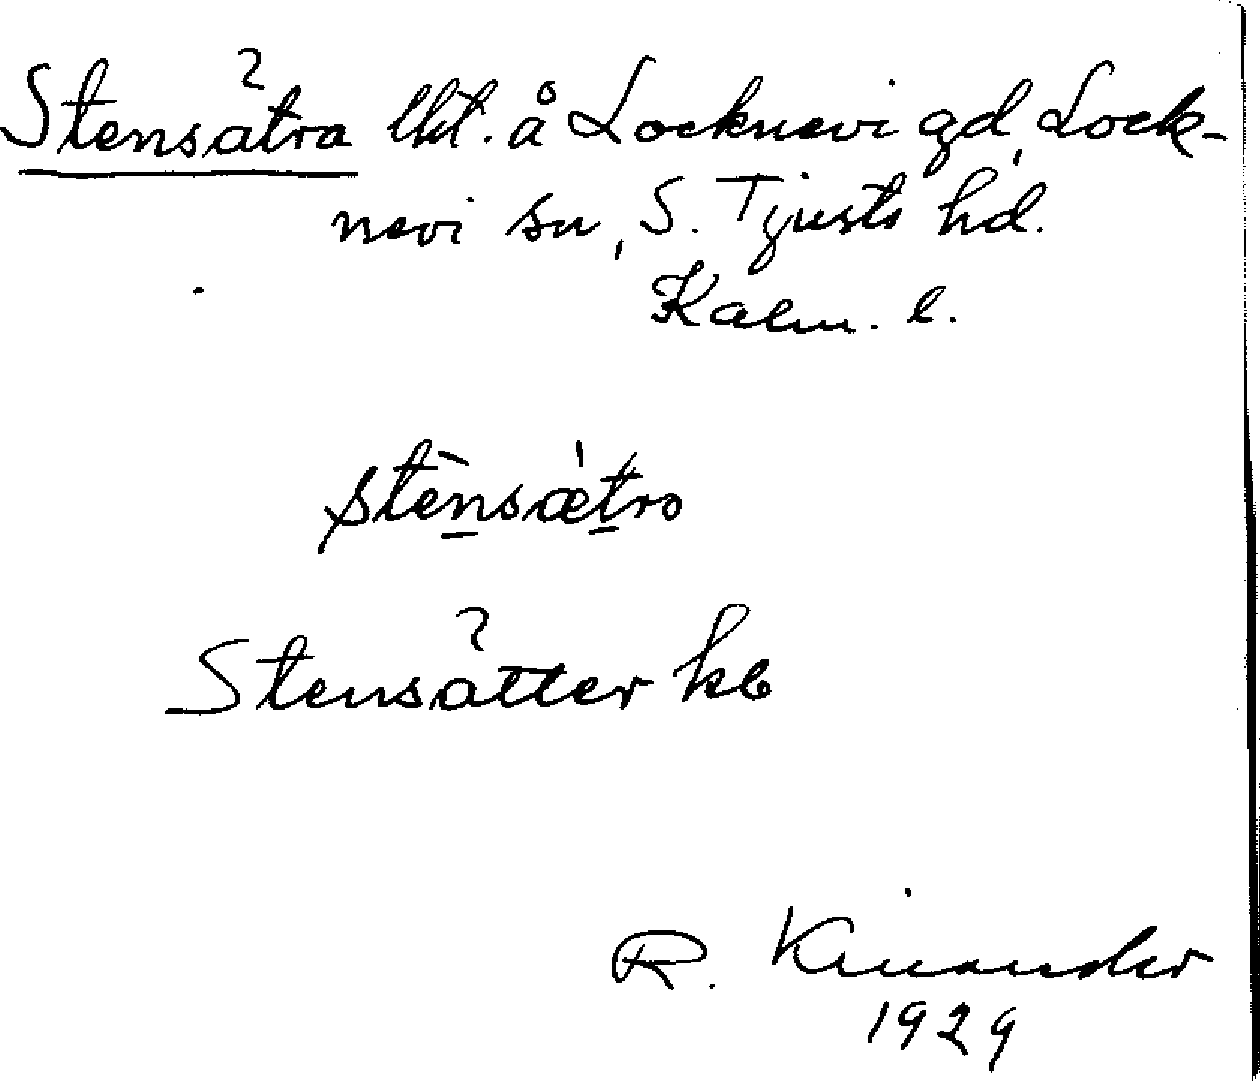 Stensätra lht. å Locknevi gd, Lock-
nevi sn, S. Tjusts hd.
Kalm. l.
stènsæ̀tro
Stensätter kb
R. Kinander
1929